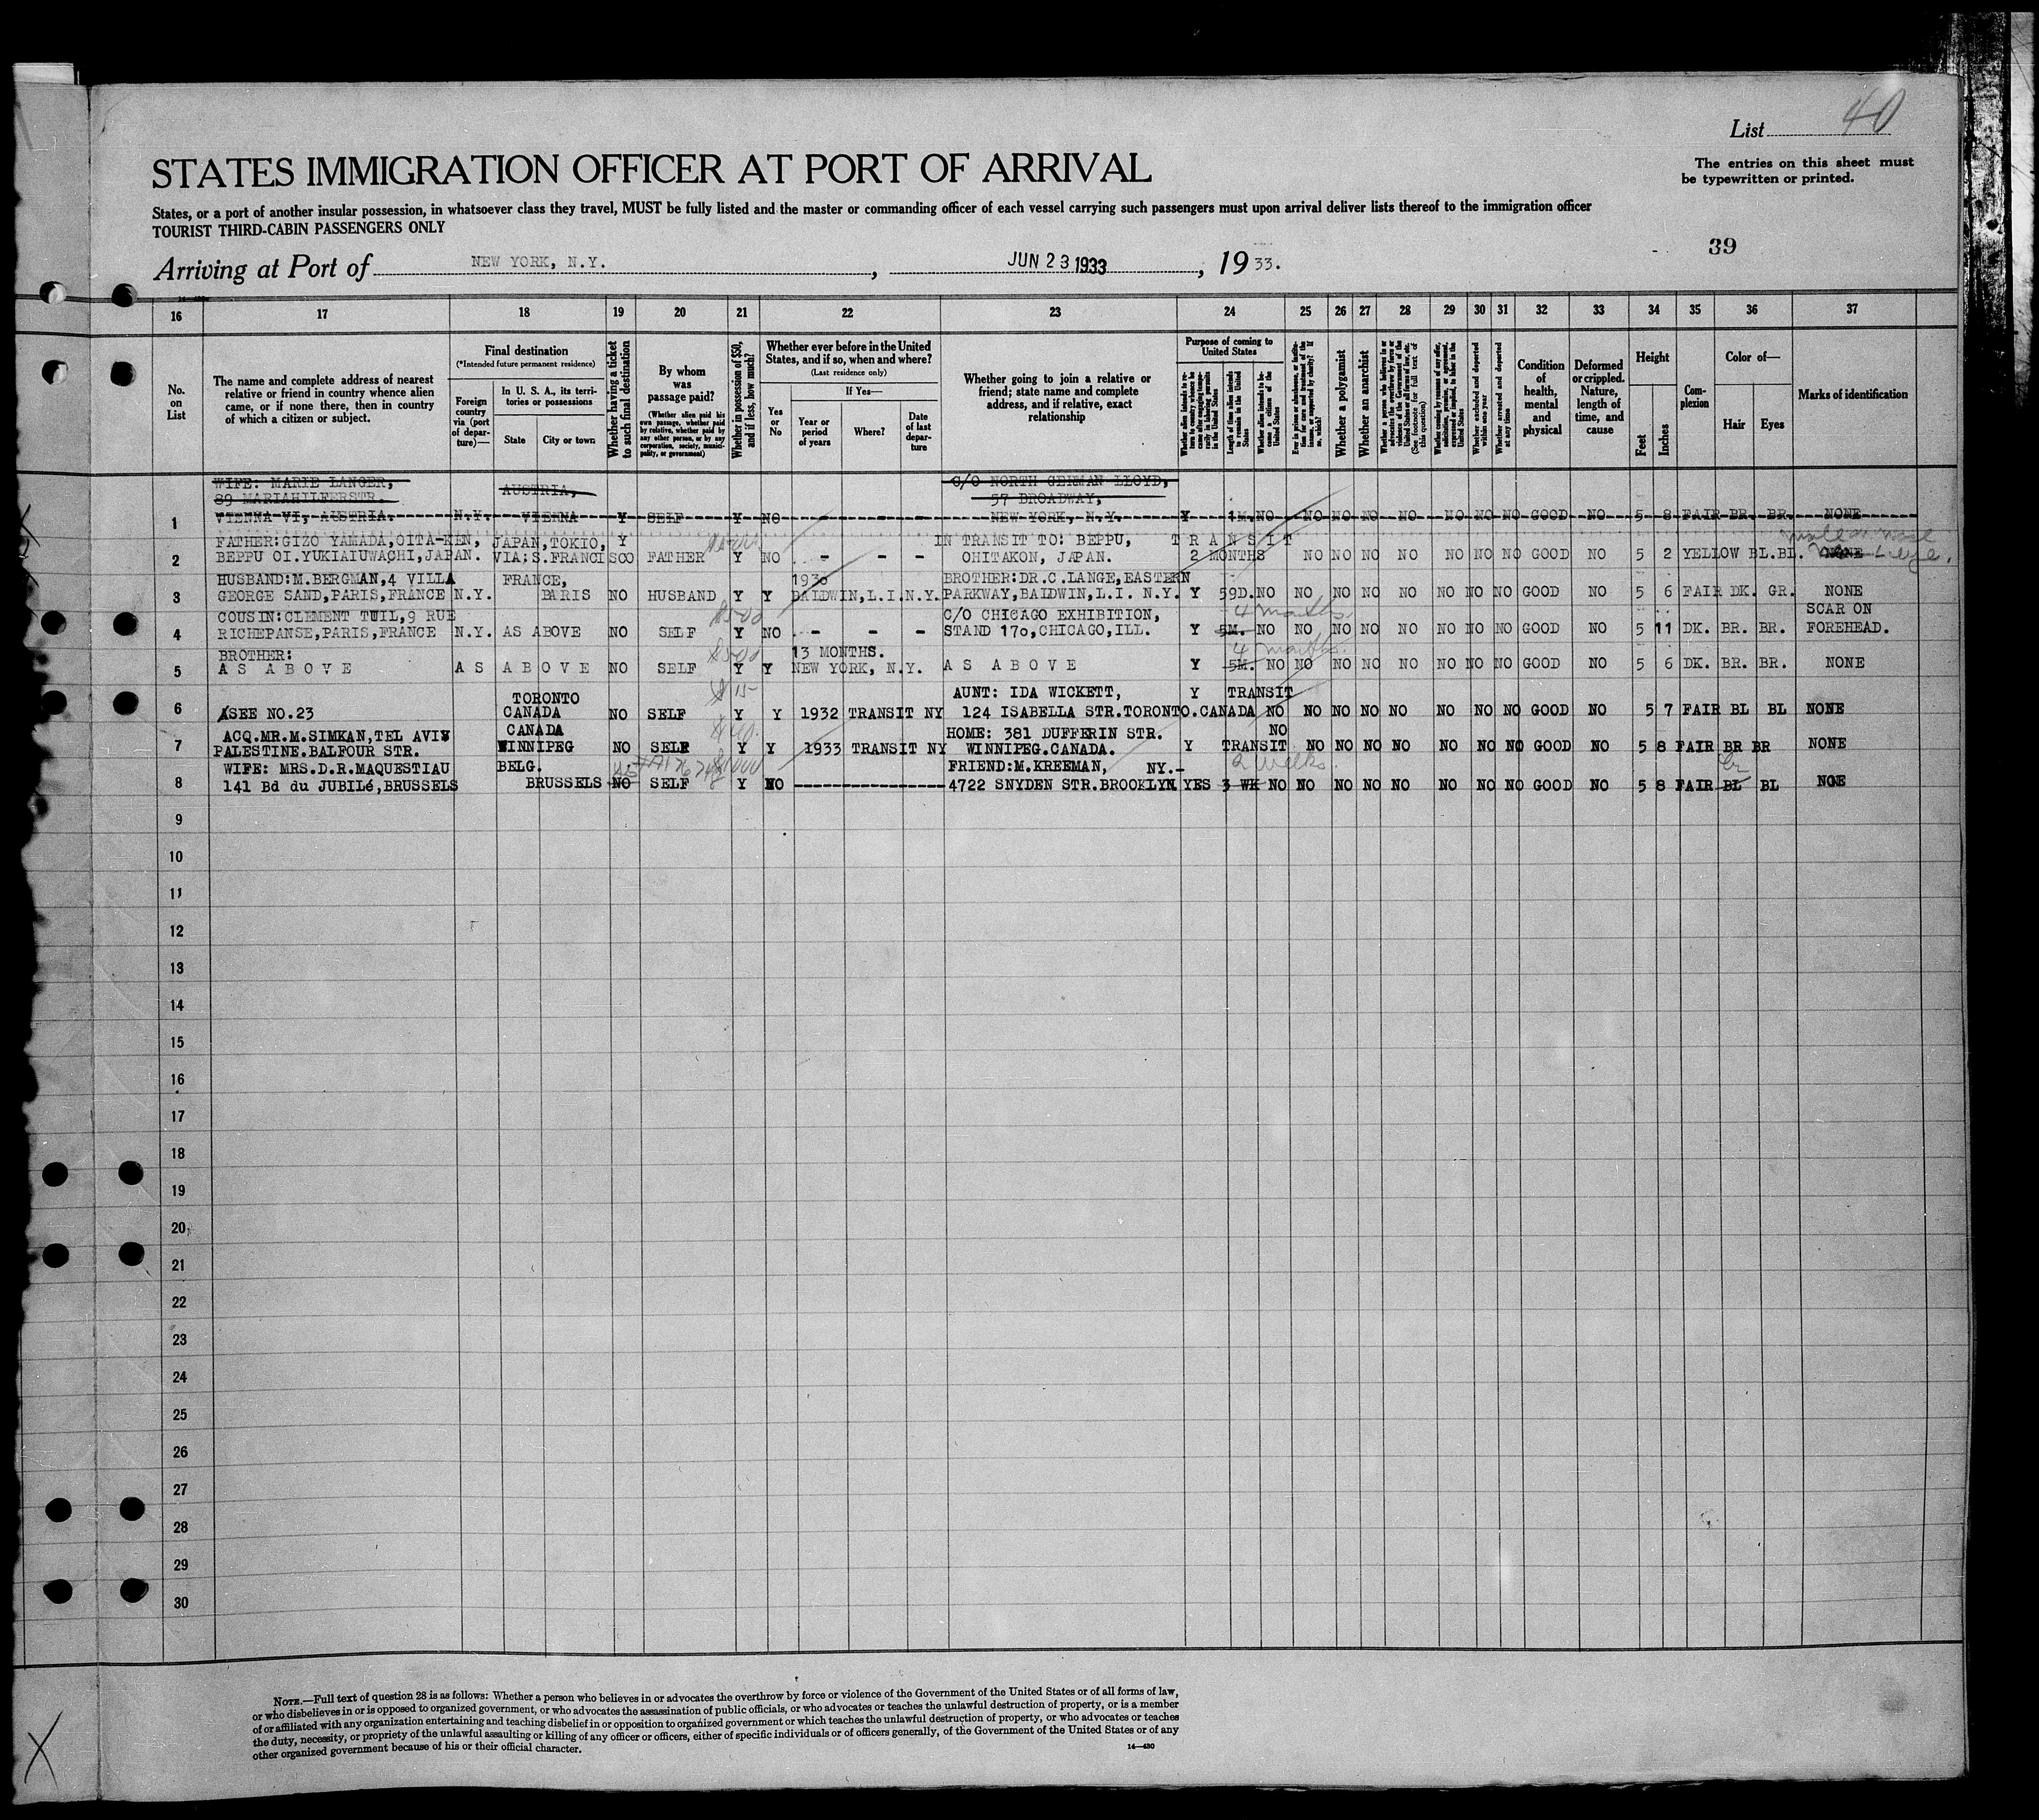 List 40
The entries on this sheet must
be typewritten or printed.
STATES IMMIGRATION OFFICER AT PORT OF ARRIVAL
States, or a port of another insular possession, in whatsoever class they travel, MUST be fully listed and the master or commanding officer of each vessel carrying such passengers must upon arrival deliver lists thereof to the immigration officer
TOURIST THIRD-CABIN PASSENGERS ONLY
39
Arriving at Port of NEW YORK, N.Y. , JUN 23 1933 , 1933.
16 17 18 19 20 21 22 23 24 25 26 27 28 29 30 31 32 33 34 35 36 37
No. on List
The name and complete address of nearest
relative or friend in country whence alien
came, or if none there, then in country
of which a citizen or subject.
Final destination
(*Intended future permanent residence)
Foreign country via (port of departure)—
In U. S. A., its territories or possessions
State
City or town
Whether having a ticket to such final destination
By whom was passage paid?
(Whether alien paid his own passage, whether paid by relative, whether paid by any other person, or by any corporation, society, municipality, or government)
Whether in possession of $50, and if less, how much?
Whether ever before in the United
States, and if so, when and where?
(Last residence only)
Yes or No
If Yes—
Year or period of years
Where?
Date of last departure
Whether going to join a relative or
friend; state name and complete
address, and if relative, exact
relationship
Purpose of coming to United States
Length of time alien intends to remain in the United States
Whether alien intends to become a citizen of the United States
Whether a polygamist
Whether an anarchist
Whether excluded and deported within one year
Whether arrested and deported at any time
Condition of health, mental and physical
Deformed or crippled. Nature, length of time, and cause
Height
Feet
Inches
Complexion
Color of—
Hair
Eyes
Marks of identification
WIFE: MARIE LANGER, C/O NORTH GERMAN LLOYD,
89 MARIAHILFERSTR. AUSTRIA, 57 BROADWAY,
1 VIENNA VI, AUSTRIA. N.Y. VIENNA Y SELF Y NO NEW YORK, N.Y. Y 1M. NO NO NO NO NO NO NO NO GOOD NO 5 8 FAIR BR. BR. NONE
FATHER:GIZO YAMADA,OITA-KEN, JAPAN,TOKIO, Y IN TRANSIT TO: BEPPU, TRANSIT
2 BEPPU OI.YUKIAIUWACHI,JAPAN. VIA;S.FRANCISCO FATHER Y NO - - - OHITAKON, JAPAN. 2 MONTHS NO NO NO NO NO NO NO GOOD NO 5 2 YELLOW BL.BL. NONE
HUSBAND:M.BERGMAN,4 VILLA FRANCE, 1930 BROTHER:DR.C.LANGE,EASTERN
3 GEORGE SAND,PARIS,FRANCE N.Y. PARIS NO HUSBAND Y Y BALDWIN,L.I.N.Y. PARKWAY,BALDWIN,L.I. N.Y. Y 59D. NO NO NO NO NO NO NO NO GOOD NO 5 6 FAIR DK. GR. NONE
COUSIN:CLEMENT TUIL,9 RUE $500 C/O CHICAGO EXHIBITION, 4 months. SCAR ON
4 RICHEPANSE,PARIS,FRANCE N.Y. AS ABOVE NO SELF Y NO - - - STAND 170,CHICAGO,ILL. Y 5M. NO NO NO NO NO NO NO NO GOOD NO 5 11 DK. BR. BR. FOREHEAD.
BROTHER: $500 13 MONTHS. 4 months.
5 AS ABOVE AS ABOVE NO SELF Y Y NEW YORK, N.Y. AS ABOVE Y 5M. NO NO NO NO NO NO NO NO GOOD NO 5 6 DK. BR. BR. NONE
TORONTO $15- AUNT: IDA WICKETT, Y TRANSIT
6 SEE NO.23 CANADA NO SELF Y Y 1932 TRANSIT NY 124 ISABELLA STR.TORONTO.CANADA NO NO NO NO NO NO NO NO GOOD NO 5 7 FAIR BL BL NONE
ACQ.MR.M.SIMKAN,TEL AVIV CANADA $40. HOME: 381 DUFFERIN STR. NO
7 PALESTINE.BALFOUR STR. WINNIPEG NO SELF Y Y 1933 TRANSIT NY WINNIPEG.CANADA. Y TRANSIT NO NO NO NO NO NO NO GOOD NO 5 8 FAIR BR BR NONE
WIFE: MRS.D.R.MAQUESTIAU BELG. $1000 FRIEND:M.KREEMAN, NY.- 2 weeks. br
8 141 Bd du JUBILé,BRUSSELS BRUSSELS NO SELF Y NO 4722 SNYDEN STR.BROOKLYN YES 3 WK NO NO NO NO NO NO NO NO GOOD NO 5 8 FAIR BL BL NOE
9
10
11
12
13
14
15
16
17
18
19
20
21
22
23
24
25
26
27
28
29
30
NOTE.—Full text of question 28 is as follows: Whether a person who believes in or advocates the overthrow by force or violence of the Government of the United States or of all forms of law,
or who disbelieves in or is opposed to organized government, or who advocates the assassination of public officials, or who advocates or teaches the unlawful destruction of property, or is a member
of or affiliated with any organization entertaining and teaching disbelief in or opposition to organized government or which teaches the unlawful destruction of property, or who advocates or teaches
the duty, necessity, or propriety of the unlawful assaulting or killing of any officer or officers, either of specific individuals or of officers generally, of the Government of the United States or of any
other organized government because of his or their official character.
14—430